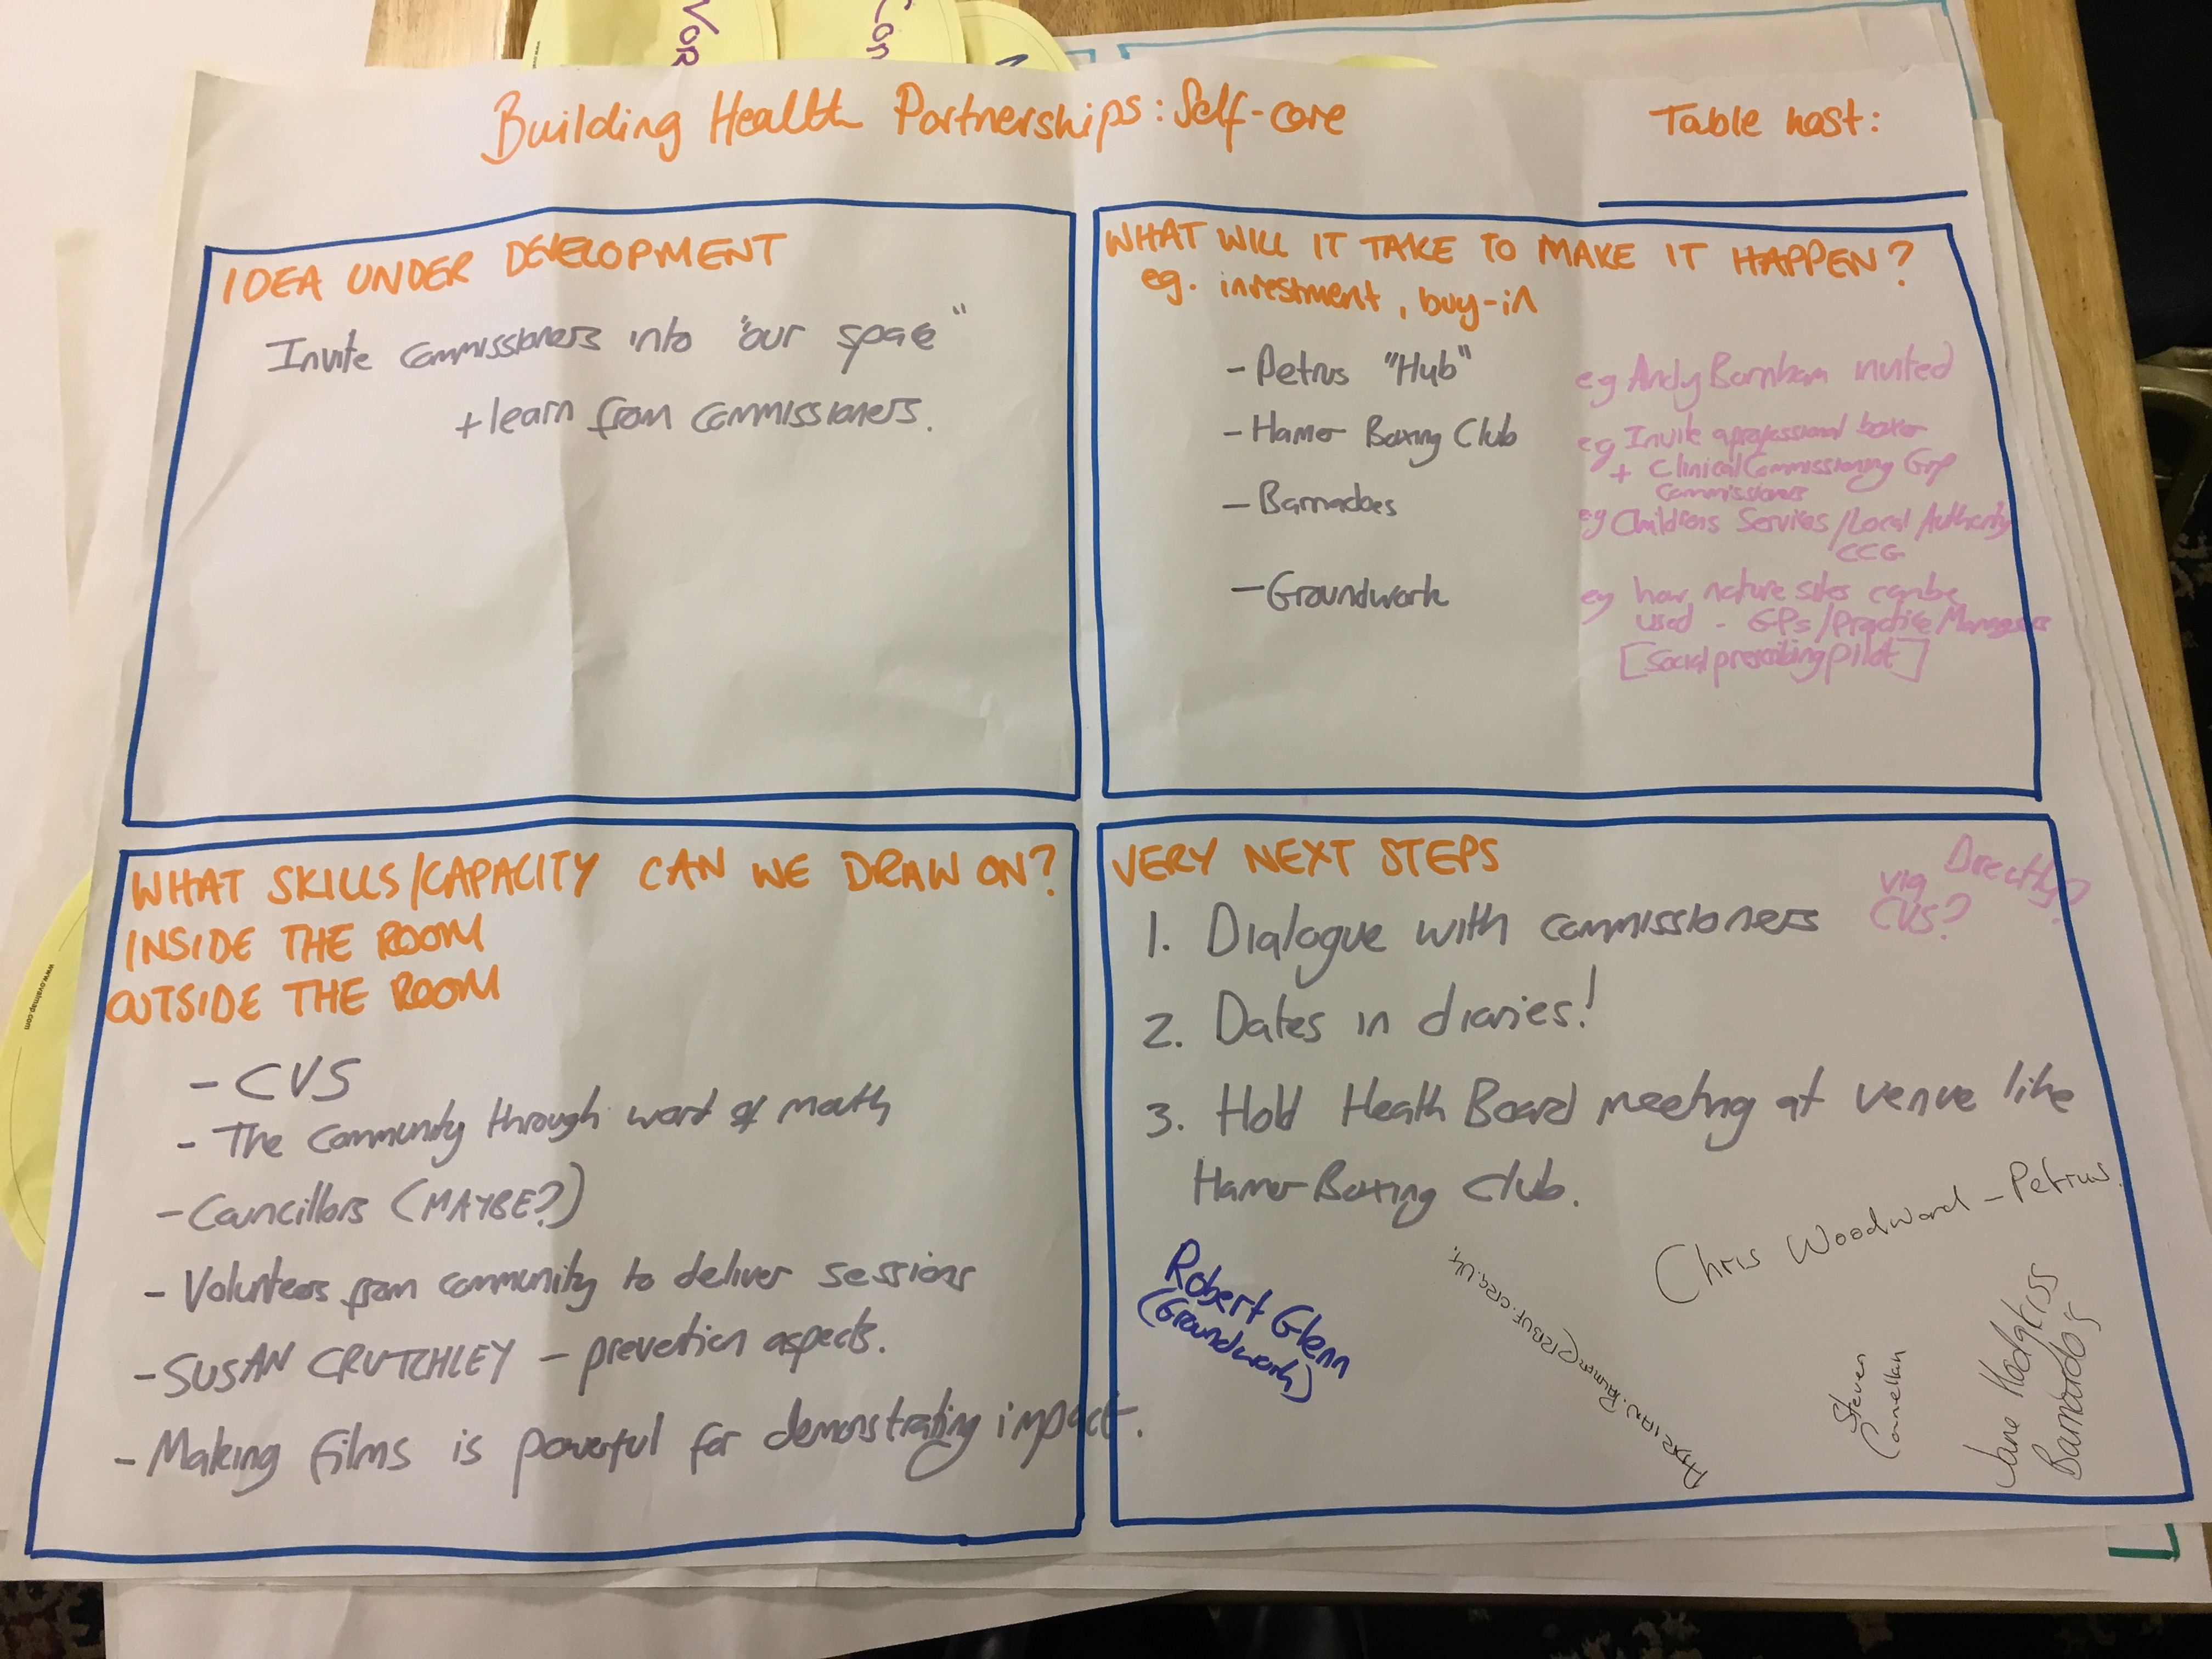 Vor
Con
Building Health Partnerships: Self-care
Table host:
IDEA UNDER DEVELOPMENT
Invite commissioners into "our space"
+ learn from commissioners.
WHAT WILL IT TAKE TO MAKE IT HAPPEN?
eg. investment, buy-in
- Petrus "Hub"
eg Andy Burnham invited
- Hamer Boxing Club
eg Invite a professional boxer
+ Clinical Commissioning Grp
Commissioners
- Barnadoes
eg Childrens Services/Local Authority
CCG
- Groundwork
eg how nature sites can be
used - GPs/Practice Managers
[Social prescribing pilot]
WHAT SKILLS/CAPACITY CAN WE DRAW ON?
INSIDE THE ROOM
OUTSIDE THE ROOM
- CVS
- The community through word of mouth
- Councillors (MAYBE?)
- Volunteers from community to deliver sessions
- SUSAN CRUTCHLEY - prevention aspects.
- Making films is powerful for demonstrating impact.
www.ovalmap.com
VERY NEXT STEPS
via CVS?
Directly?
1. Dialogue with commissioners
2. Dates in diaries!
3. Hold Heath Board meeting at venue like
Hamer Boxing Club.
Robert Glenn
(Groundwork)
Chris Woodward - Petrus.
Steven
Jane Hodgkiss
Barnardo's